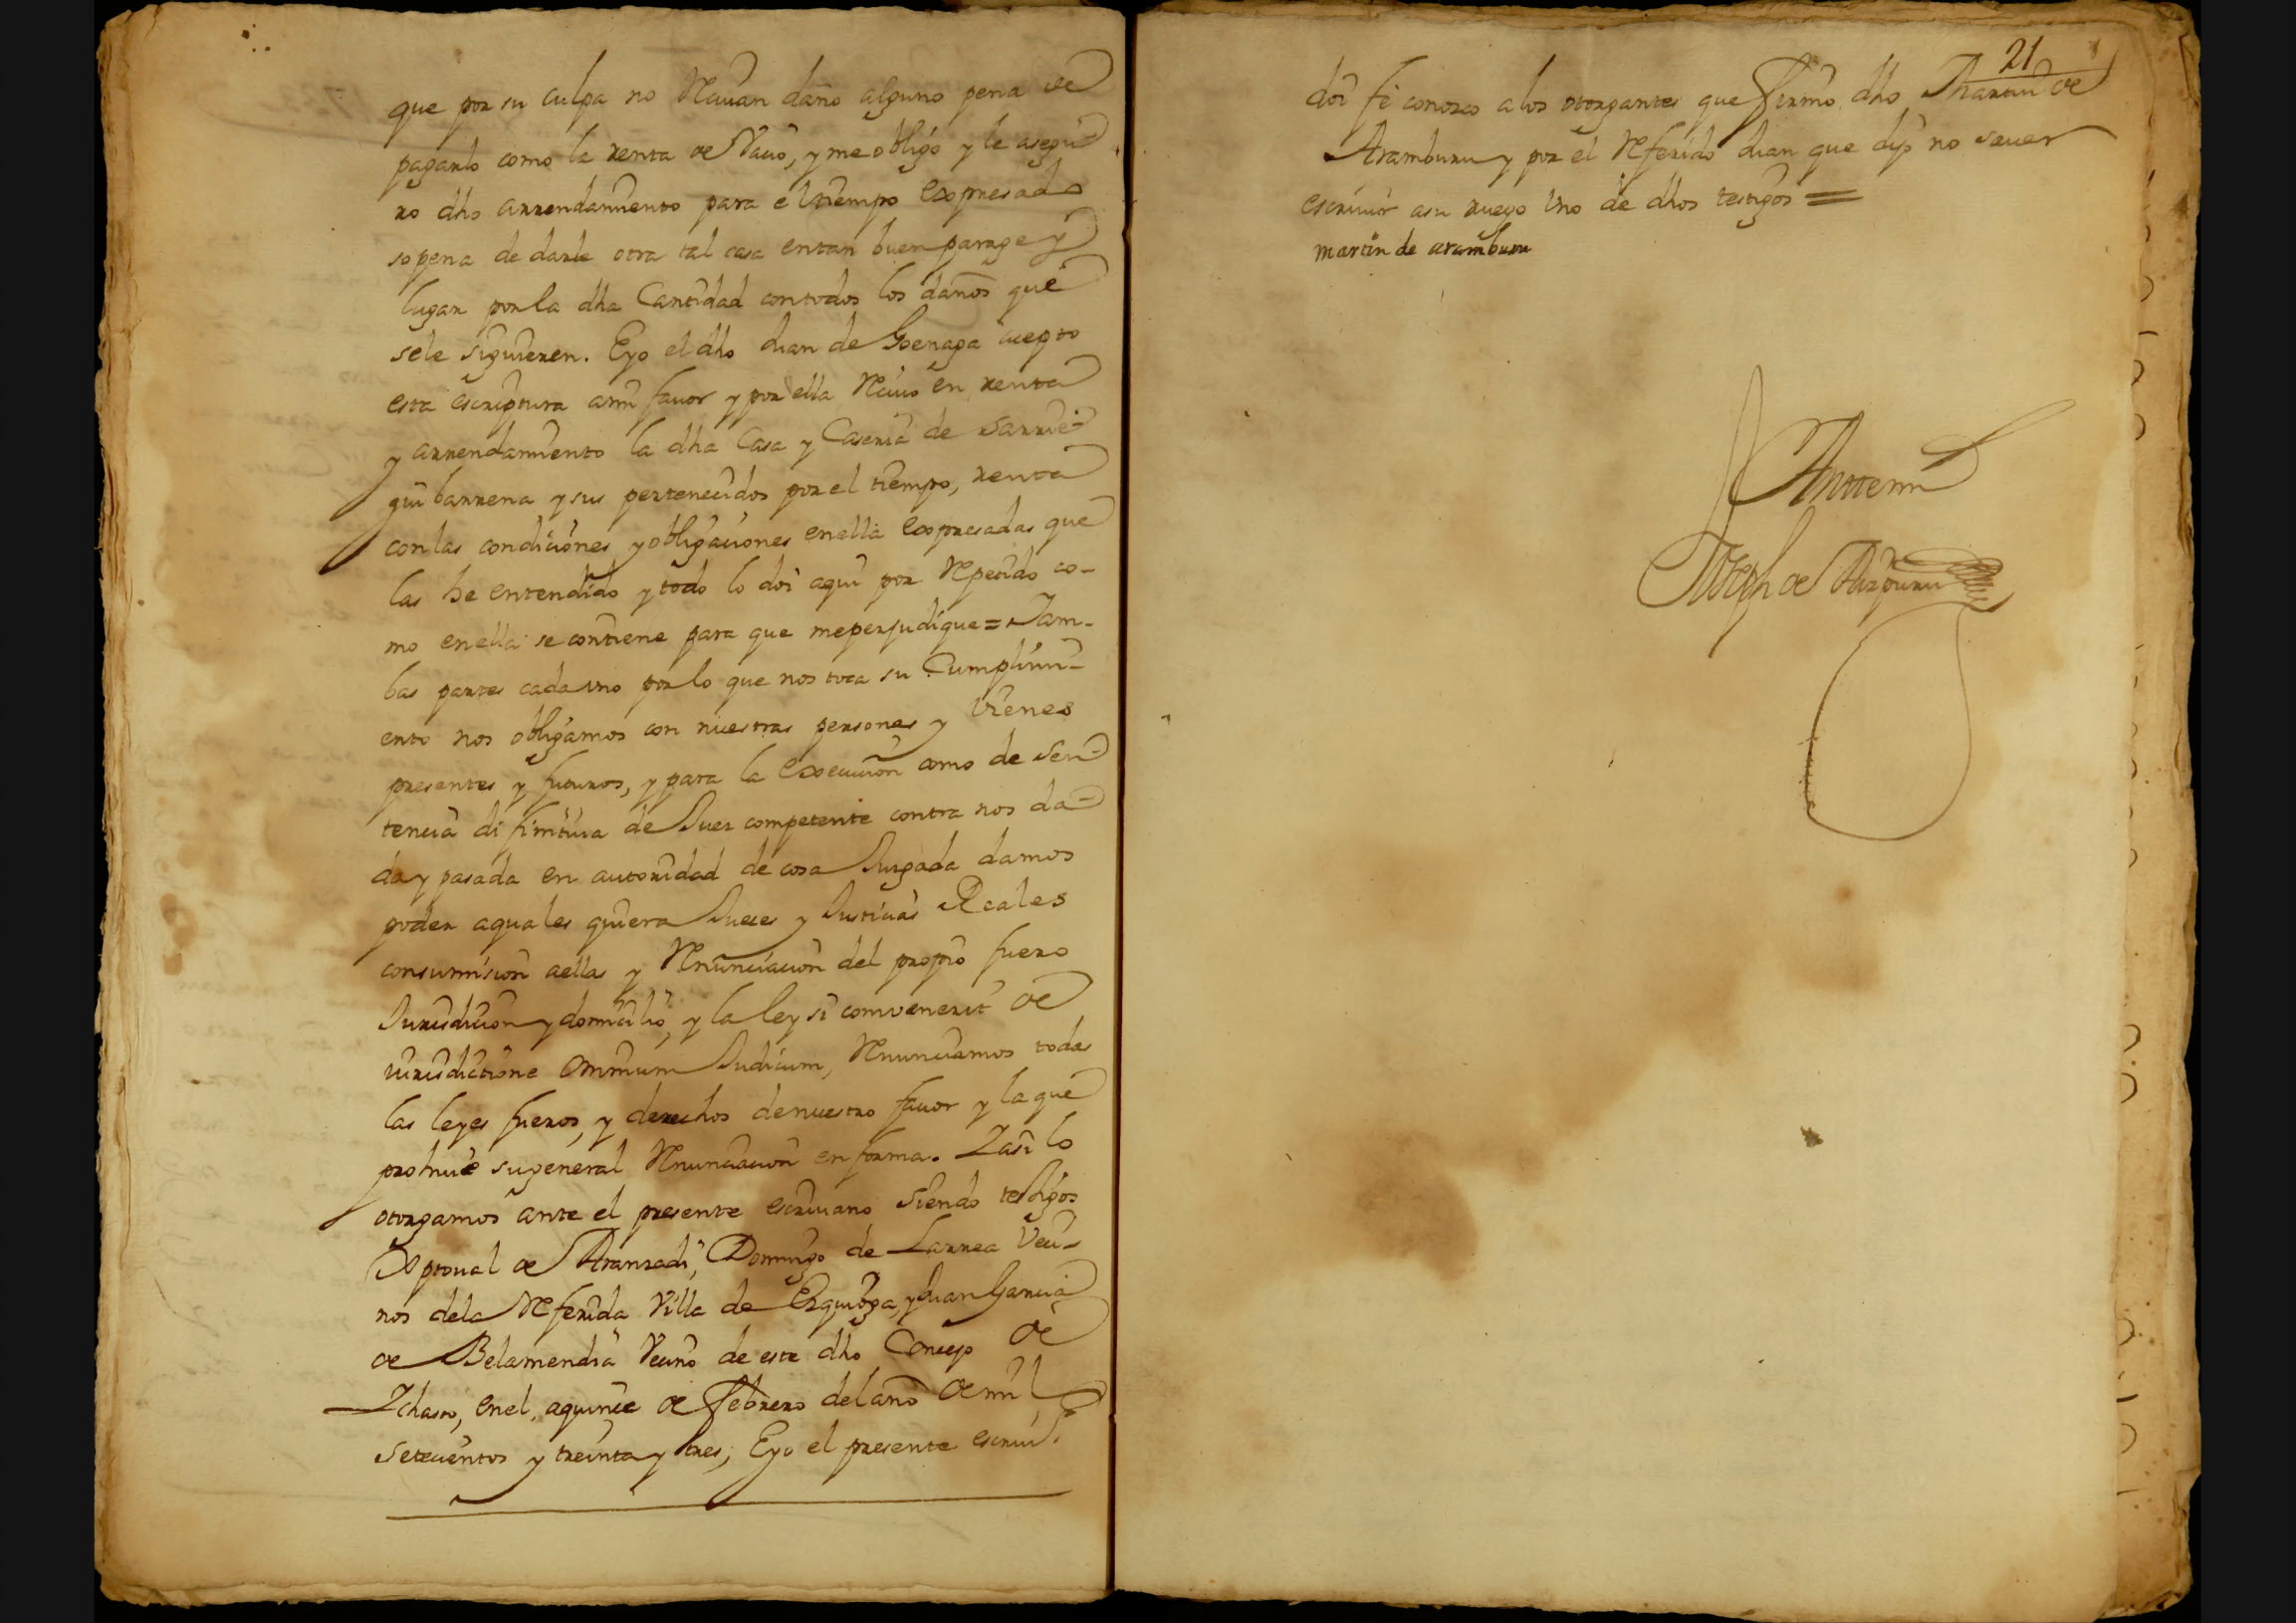 que por su culpa no Reciuan daño alguno pena de
pagarlo como la renta de Vacio, y me obligo y le asegu-
ro dho arrendamiento para el tiempo expresado
so pena de darle otra tal casa en tan buen parage y
lugar por la dha Cantidad con todos los daños que
se le siguieren. E yo el dho Juan de Goenaga acepto
esta escriptura a mi fauor y por ella Reciuo en renta
y arrendamiento la dha Casa y Caseria de Sarrie-
gui barrena y sus pertenecidos por el tiempo, renta
con las condiciones y obligaciones en ella expresadas que
las he entendido y todo lo doi aqui por Repetido co-
mo en ella se contiene para que me perjudique = Y am-
bas partes cada uno por lo que nos toca su Cumplimi-
ento nos obligamos con nuestras personas y Vienes
presentes y futuros, y para la execucion como de Sen-
tencia difinitiua de Juez competente contra nos da-
da y pasada en autoridad de cosa Jusgada damos
poder a quales quiera Jueces y Justicias Reales
con sumision a ellas y Renunciacion del propio fuero
Jurisdicion y domicilio, y la ley si convenerit de
iurisdictione omnium Judicum, Renunciamos todas
las leyes fueros, y derechos de nuestro fauor y la que
prohiue su general Renunciacion en forma. Y asi lo
otorgamos ante el presente escriuano siendo testigos
Xptoual de Aranzadi, Domingo de Larrea Veci-
nos de la Referida Villa de Ezquioga, y Juan Garcia
de Belamendia Vecino de este dho Concejo de
Ichaso, en el, a quince de Febrero del año de mil
Setecientos y treinta y tres, E yo el presente escriu.º
21
doi fe conozco a los otorgantes que firmo dho Martin de
Aramburu y por el Referido Juan que dijo no sauer
escriuir a su ruego Vno de dhos testigos =
martin de aramburu
Ante mi
Joseph de Aizpuru